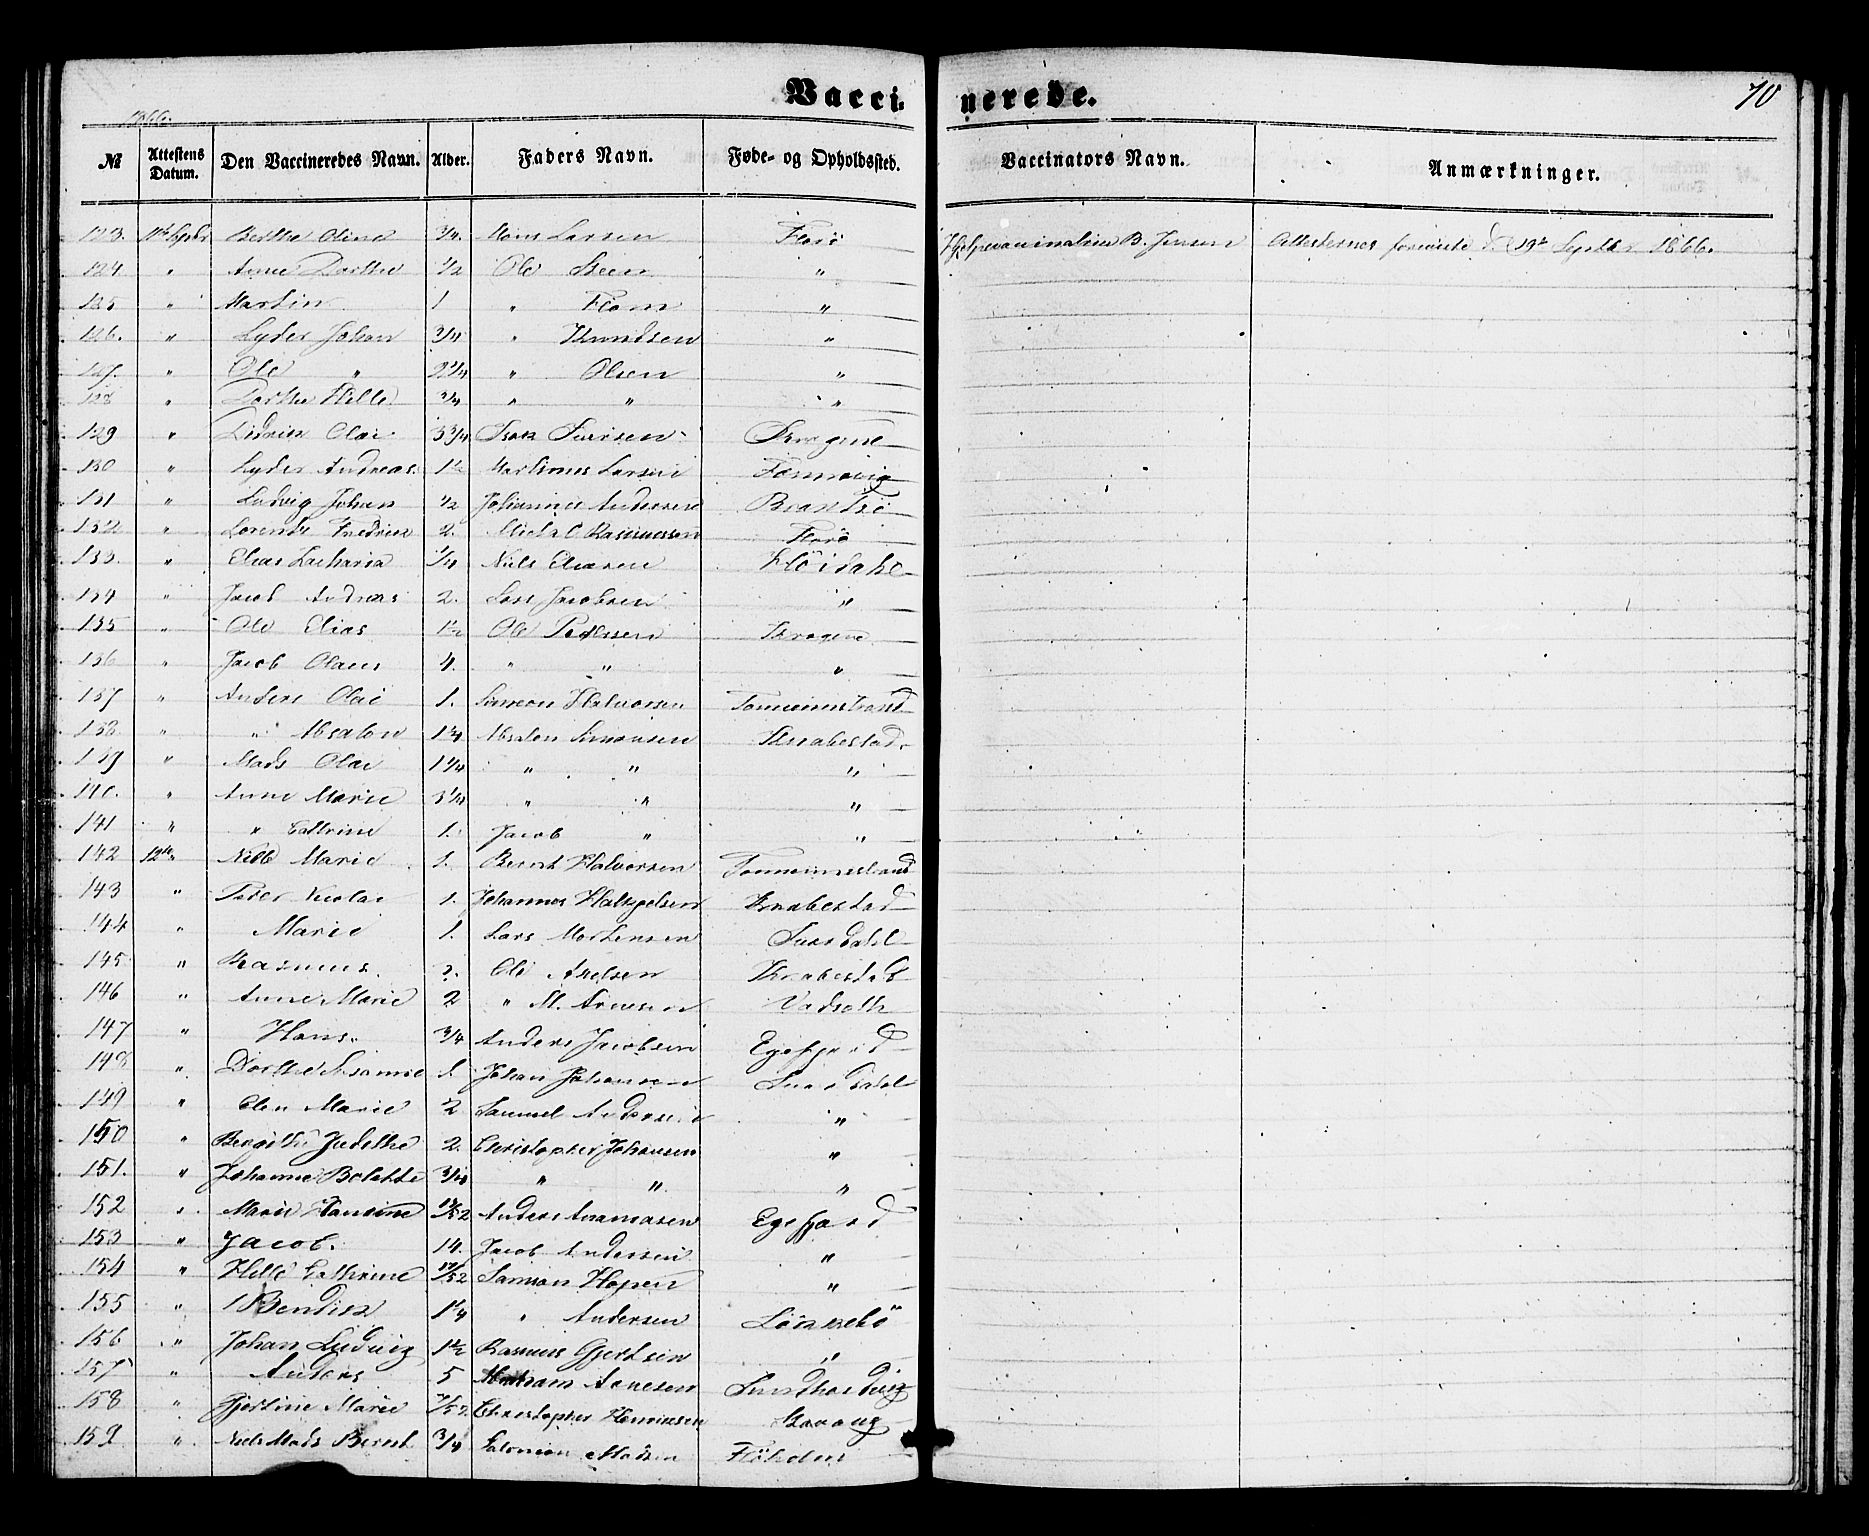 Vaccinerede. 70
1866.
№ Attestens Datum. Den Vaccineredes Navn. Alder. Faders Navn. Føde- og Opholdssted. Vaccinators Navn. Anmærkninger.
123. 11te Septbr Berthe Oline 3/4. Mons Larsen Florö Hjelpevaccinatrice B. Jensen Attesterne foreviste d. 19de Septbr 1866.
124 " Anne Dorthe 1/2 Ole Steen "
125 " Martin 1 " Flom "
126. " Lyder Johan 3/4 " Knudsen "
127. " Ole " 2 1/4 " Olsen "
128 " Dorthe Helle 3/4 " " "
129 " Didrick Olai 3 3/4 Isak Iversen
130 " Lyder Andreas 1 1/2 Martinus Larsen
131 " Ludvig Johan 1/2 Johannes Andersen Brandsö
132 " Lorends Fredrick 2. Michal Rasmussen Florö
133. " Elias Zacharia 1/4 Niels Eliasen Höidahl
134 " Jacob Andreas 2. Lars Jacobsen "
135 " Ole Elias 1 1/2 Ole Pedersen
136 " Jacob Olaus 4. " " "
137 " Anders Olai 1. Simeon Halvorsen
138 " " Absalon 1 3/4 Absalon Simonsen Knabestad
139 " Mads Olai 1 1/4 " " "
140. " Anne Marie 3 1/4 " " "
141 " " Cathrine 1. Jacob " "
142 12te " Marie 1. Bernt Halvorsen
143 " Peder Nicolai 1. Johannes Knabestad
144 " Marie 1. Lars Mortensen
145 " Rasmus. Ole Axelsen Knabestad
146 " Anne Marie 2 " M. Arnesen Vadseth
147 " Hans. 3/4 Anders Jacobsen
148 " Dorthe Susanne 1. Johan Johansen
149 " Elen Marie 1/2 Samuel Andersen "
150 " Bergithe Judithe 2. Christopher Johansen "
151. " Johanne 3/4 " " "
152 " Marie Hansine Anders
153 " Jacob. 14. Jacob Andersen "
154 " Helle Cathrine Samson Hopen "
155 " Bendick 1 1/4 " Andersen Lökkebö
156 " Johan Ludvig 1 1/2 Rasmus Gjertsen "
157 " Anders 5 Abraham Arnesen
158 " Gjertine Marie Christopher Henriksen
159 " Niels Mads Bernt 3/4 Salomon Madsen